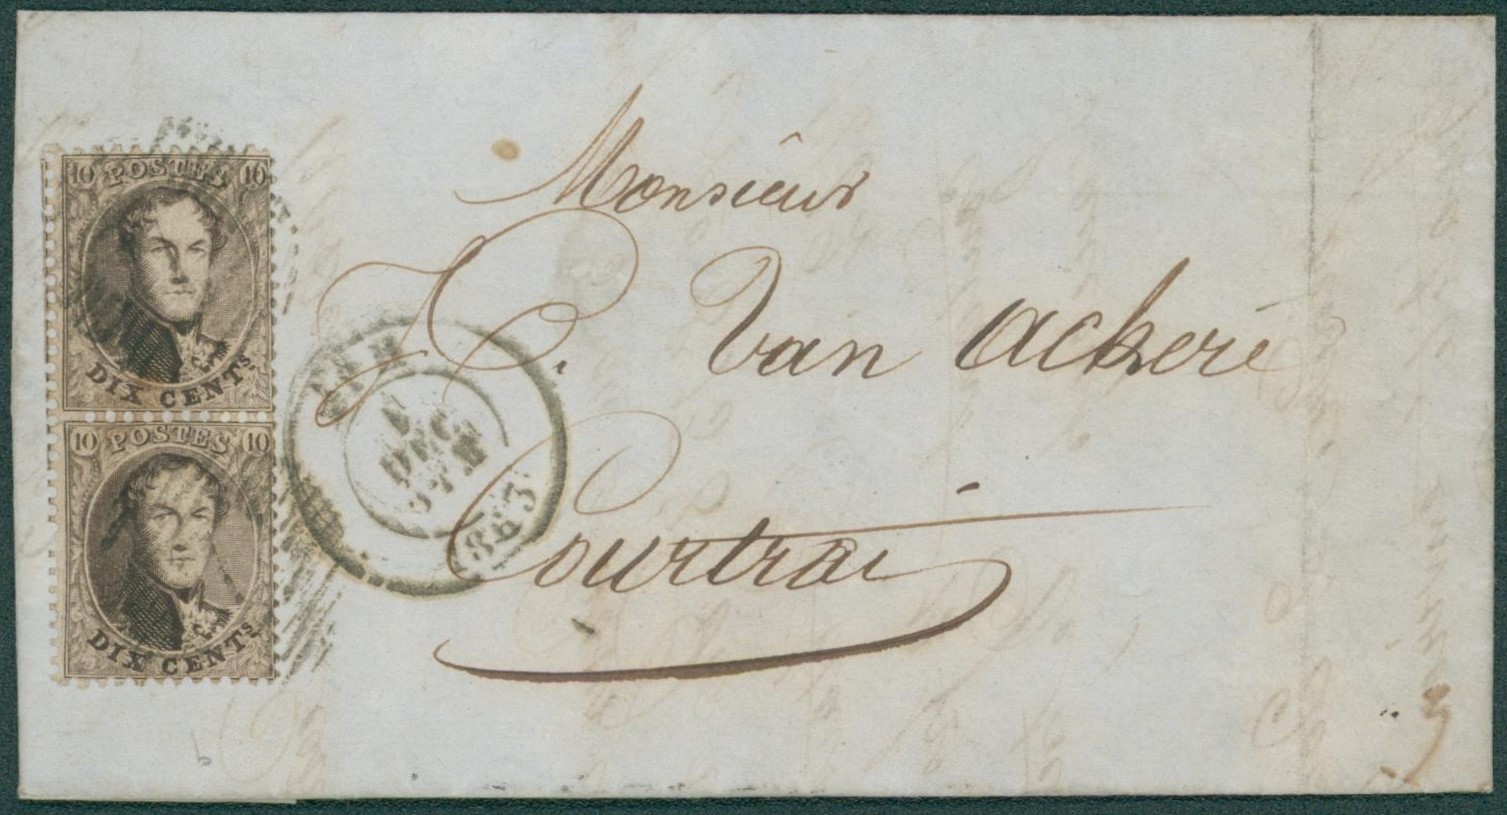 10 POSTES 10
DIX CENTS
10 POSTES 10
DIX CENTS
DEC
1863
Monsieur
C. Van Ackere
Courtrai
b